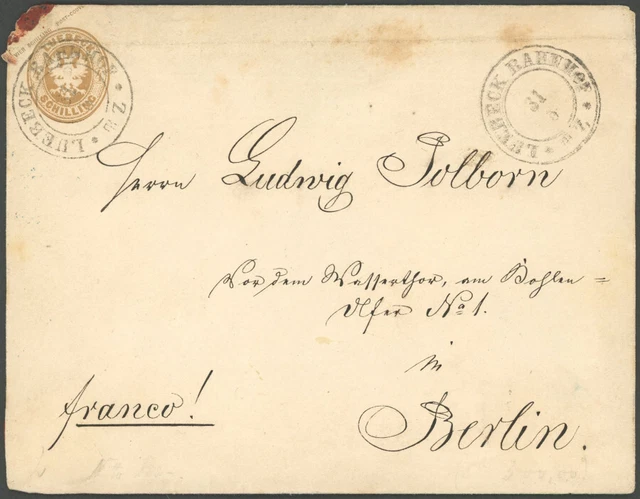 SCHILLING
LUEBECK BAHNHOF * Z m *
LUEBECK BAHNHOF * Z m *
31
Herrn Ludwig Polborn
Vor dem Wasserthor, am Bohlen=
Ufer No 1.
in
franco!
Berlin.